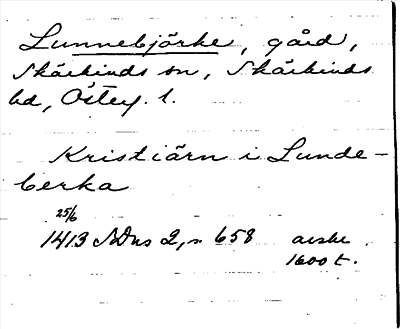 Lunnebjörke, gård,
Skärkinds sn, Skärkinds
hd, Östg. l.
Kristiärn i Lunde-
berka
25/6
1413 SDns 2, s 658 avskr.
1600 t.